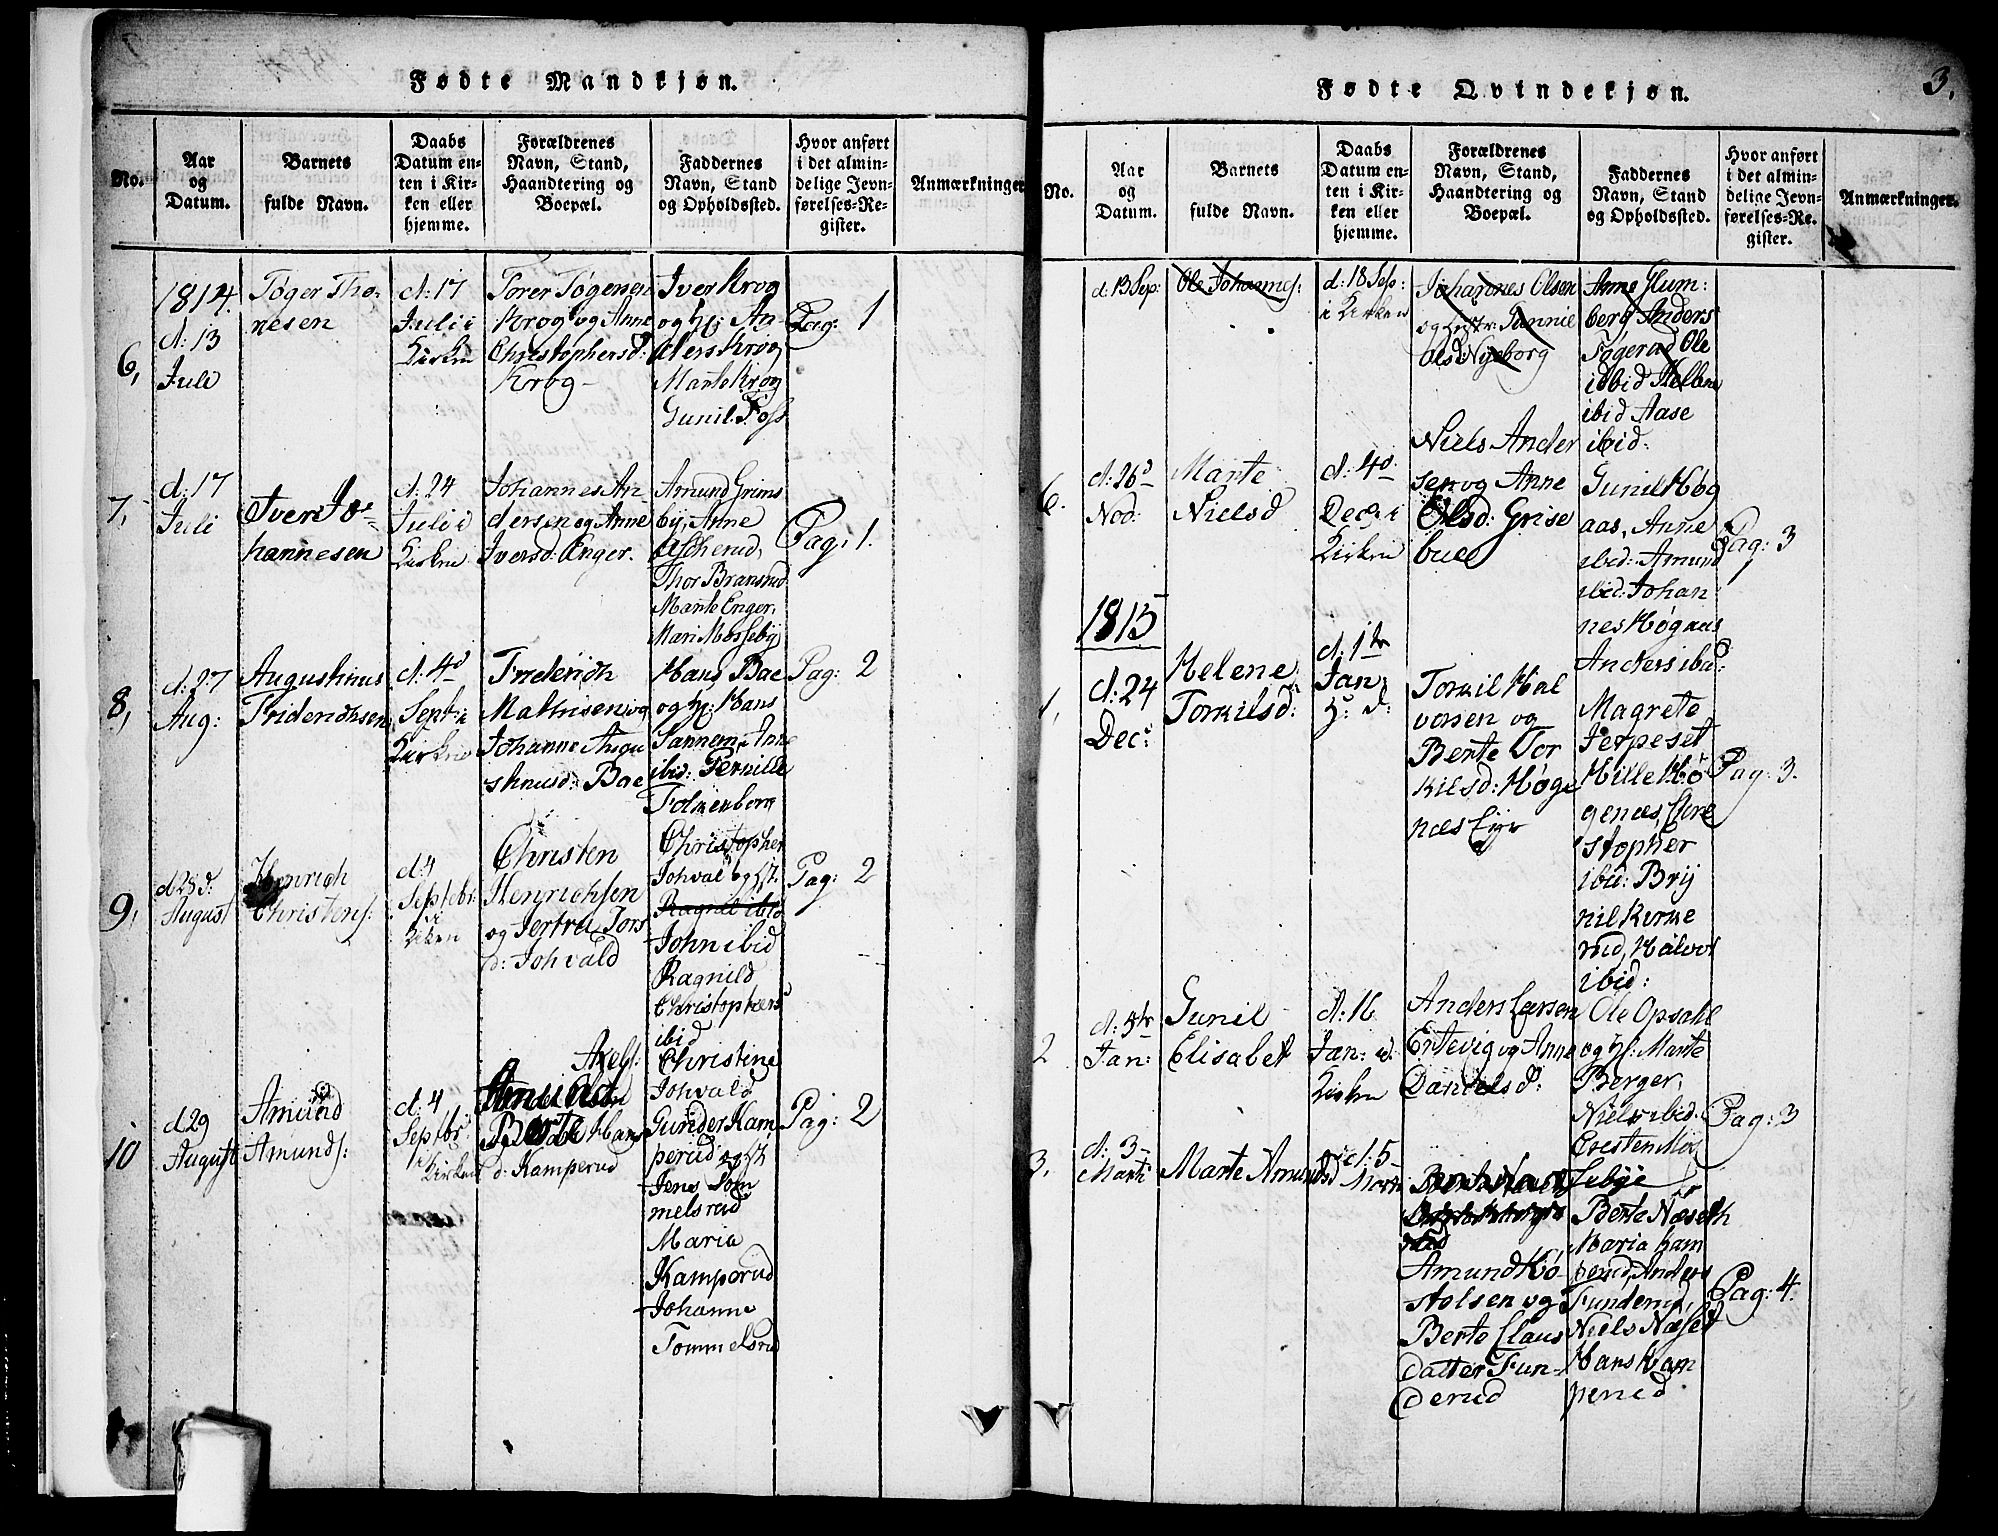 Fødte Mandkjøn.
No.
Aar
og
Datum.
Barnets
fulde Navn.
Daabs
Datum en-
ten i Kir-
ken eller
hjemme.
Forældrenes
Navn, Stand,
Haandtering og
Boepæl.
Faddernes
Navn, Stand
og Opholdssted.
Hvor anført
i det almin-
delige Jevn-
førelses-Re-
gister.
Anmærkninger
6,
1814.
d: 13
Juli
Tøger Tho-
nesen
d: 17
Juli i
Kirken
Torer Tøgersen
Krog og Anne
Christophersd:
Krog
Iver Krog
og Hst: An-
ders Krog
Marte Krog
Gunil. Foss
Pag: 1
7,
d: 17
Juli
Iver Jo-
hannesen
d: 24
Juli i
Kirken
Johannes An-
dersen og Anne
Iversd: Enger.
Amund Grims
by, Anne
Ascherud,
Thor Bransrud
Marte Enger,
Mari Mosseby
Pag: 1.
8,
d: 27
Aug:
Augustinus
Friderichsen
d: 4d
Sept: i
Kirken
Friderich
Mathisen og
Johanne Augu
stinusd: Bae
Hans Bae
og Hst: Hans
Sannem, Anne
ibid: Terkille
Folkenborg
Pag: 2
9,
d 28 d:
August
Henrich
Christens:
d: 4
Septbr:
i
Kirken
Christen
Henrichsen
og Jertru Tors
d: Johvald
Christopher
Johval og Hst:
Ragnil ibid
John ibid
Ragnild
Christophersd
ibid
Christine
Johvald
Pag: 2
10
d 29
August
Amund
Amunds:
d: 4
Septbr:
i Kirken
Axels:
Amund
Berte Hans
d: Kamperud
Gunder Kam
perud og Hst:
Jens Tom
melsrud
Maria
Kamperud
Johanne
Tommelsrud
Pag: 2
Fødte Qvindekjøn.
3.
No.
Aar
og
Datum.
Barnets
fulde Navn.
Daabs
Datum en-
ten i Kir-
ken eller
hjemme.
Forældrenes
Navn, Stand,
Haandtering og
Boepæl.
Faddernes
Navn, Stand
og Opholdssted.
Hvor anført
i det almin-
delige Jevn-
førelses-Re-
gister.
Anmærkninger.
d: 13 Sep:
Ole Johannes:
d: 18 Sep:
i Kirken
Johannes Olsen
og Hustr: Gunnil
Olsd: Nyeborg
Anne Glum:
berg Anders
Togerud Ole
ibid Hellene
ibid Aase
ibid:
6.
d: 26d
Nov:
Marte
Nielsd
d: 4d
Dec: i
Kirken
Niels Ander
sen og Anne
Olsd: Grise
bue
Gunil Høg
aas, Anne
ibid: Amund
ibid: Johan
nes Høgaas
Anders ibid:
Pag: 3
1815
1,
d: 24
Dec:
Helene
Torkilsd:
d: 1te
Jan:
H: d:
Torkil Hal
vorsen og
Berte Tor
kilsd: Høge
næs Eye
Magrete
Jerpeset
Hille Hø
genæs, Chre
stopher
ibid: Bry
nil Kirke
rud, Halvor
ibid:
Pag: 3.
2
d: 5te
Jan:
Gunil
Elisabet
d: 16
Jan: i
Kirken
Anders Larsen
Ertevig og Anne
Danielsd:
Ole Opsahl
og Hst: Marte
Berger,
Niels ibid:
Cresten Mos
sebye
Pag: 3
3.
d: 3
Marti
Marte Amundsd
d: 5
Amund Kiø
stolsen og
Berte Claus
Datter Fun-
derud
Berte Næseth
Maria Kam
perud, Anders
Funderud,
Niels Næset
Hans Kam
perud
Pag: 4.